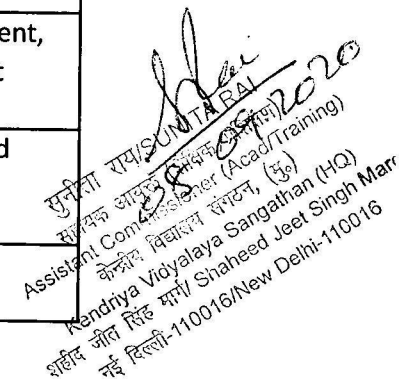 ent,
t
d
सुनीता राय/SUNITA RAI
सहायक आयुक्त
Assistant Commissioner (Acad/Training)
केन्द्रीय विद्यालय संगठन, (मु.)
Kendriya Vidyalaya Sangathan (HQ)
शहीद जीत सिंह मार्ग/ Shaheed Jeet Singh Marg
नई दिल्ली-110016/New Delhi-110016
08 09 2020